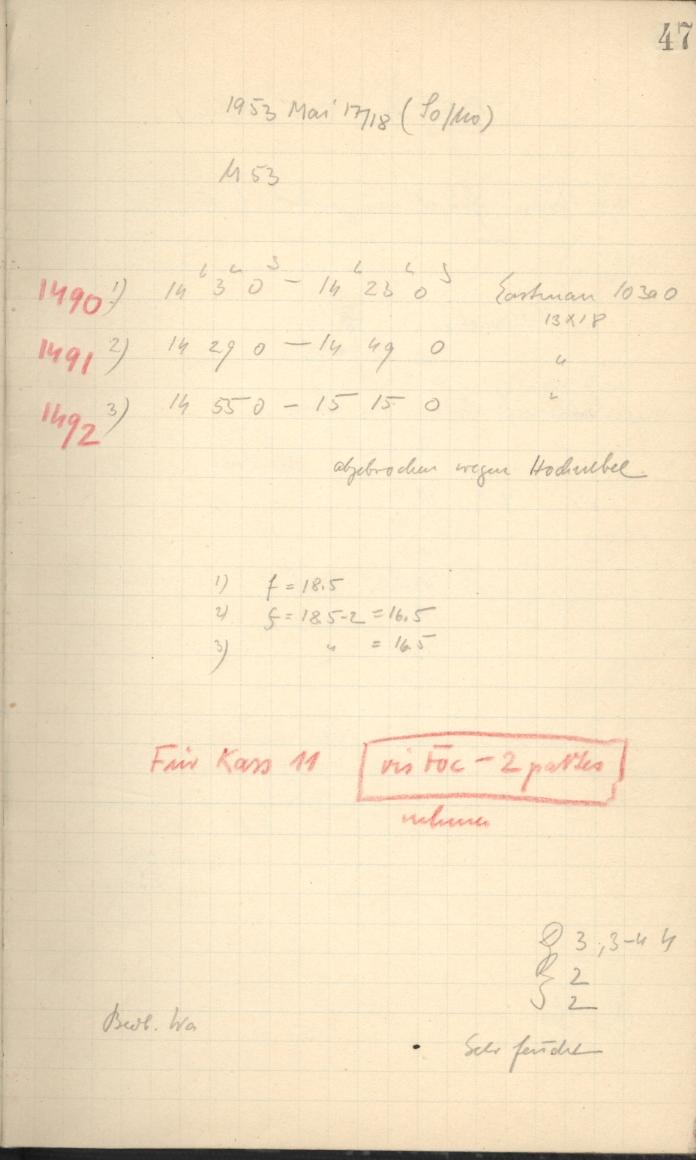 47
1953 Mai 17/18 (So/Mo)
M 53
1490 1) 14 h 3 m 0 s - 14 h 23 m 0 s Eastman 103a0
13x18
1491 2) 14 29 0 - 14 49 0 "
1492 3) 14 55 0 - 15 15 0 "
abgebrochen wegen Hochnebel
1) f = 18.5
2) f = 18.5-2 = 16.5
3) " = 16.5
Für Kass 11 vis Foc - 2 partes
nehmen
3, 3-4 4
2
2
Beob. Wa
Sehr feucht